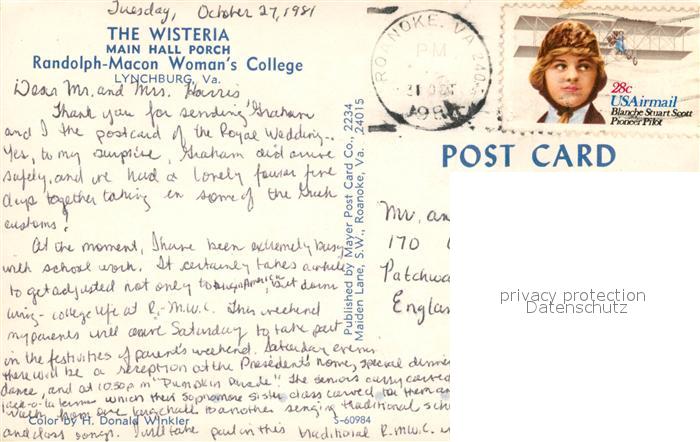 Tuesday, October 27, 1981
THE WISTERIA
MAIN HALL PORCH
Randolph-Macon Woman's College
LYNCHBURG, Va.
Dear Mr. and Mrs. Harris
Thank you for sending Graham
and I the postcard of the Royal Wedding.
Yes, to my surprise, Graham did arrive
safely, and we had a lovely four five
days together taking in some of the Greek
customs!
At the moment, I have been extremely busy
with school work. It certainly takes awhile
to get adjusted not only to but dorm
living - college life at R.-M.W.C. This weekend
my parents will arrive Saturday to take part
in the festivities of parent's weekend. Saturday evening
there will be a reception at the President's home, special dinner
dance, and at 10:30 pm "Pumpkin Parade". The seniors carry carved
jack-o-lanterns which their sophomore sister class carved for them and
walk from one hall to another singing traditional
and class songs. I will take part in this traditional R.M.W.C.
Color by H. Donald Winkler
S-60984
Published by Mayer Post Card Co., 2234
Maiden Lane, S.W., Roanoke, Va. 24015
ROANOKE, VA 240
PM
31 OCT
198
28c
USAirmail
Blanche Stuart Scott
Pioneer Pilot
POST CARD
Mr. an
170
Patchwa
England
privacy protection
Datenschutz